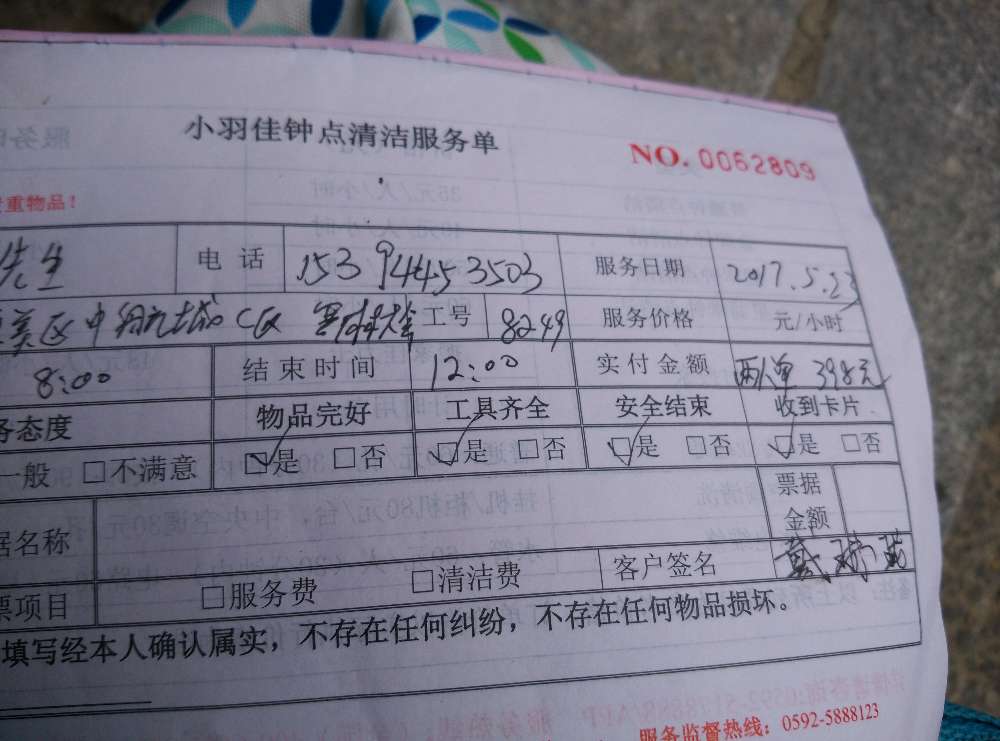 小羽佳钟点清洁服务单
NO. 0062809
重物品!
先生 电话 15394453503 服务日期 2017.5.23
美区中航城C区 工号 8249 服务价格 元/小时
8:00 结束时间 12:00 实付金额 两人单 398元
务态度 物品完好 工具齐全 安全结束 收到卡片
一般 □不满意 ☑是 □否 ☑是 □否 ☑是 □否 ☑是 □否
据名称 票据金额
票项目 □服务费 □清洁费 客户签名
填写经本人确认属实，不存在任何纠纷，不存在任何物品损坏。
服务监督热线：0592-5888123